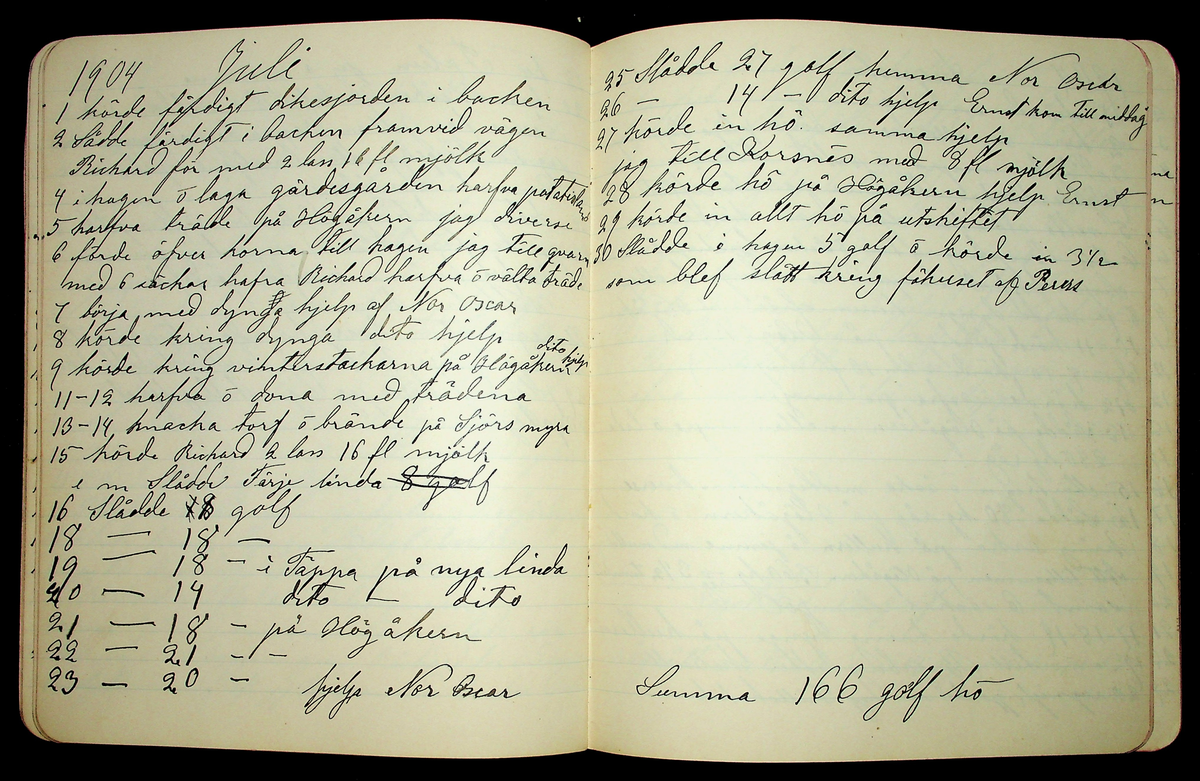 1904 Juli
1 körde färdigt dikesjorden i backen
2 Slådde färdigt i backen framvid vägen
Richard för med 2 lass 16 fl mjölk
4 i hagen ō laga gärdesgården harfva potatislandet
5 harfva träde på Högåkern jag diverse
6 förde öfver korna till hagen jag till qvarn
med 6 säckar hafra Richard harfva ō välta träde
7 börja med dynga hjelp af Nor Oscar
8 körde kring dynga dito hjelp
9 körde kring vinterstackarna på Högåkern dito hjelp
11-12 harfva ō dona med trädena
13-14, knacka torf ō brände på Sjörs myra
15 körde Richard 2 lass 16 fl mjölk
e m Slådde Tärje linda 8 golf
16 Slådde 18 golf
18 — 18 —
19 — 18 — i Täppa på nya linda
20 — 14 dito — dito
21 — 18 — på Högåkern
22 — 21 — —
23 — 20 — hjelp Nor Oscar
25 Slådde 27 golf hemma Nor Oscar
26 — 14 — dito hjelp Ernst kom till middag
27 körde in hö. samma hjelp
jag till Korsnäs med 8 fl mjölk
28 körde hö på Högåkern hjelp Ernst
29 körde in allt hö på utskiftet
30 Slådde i hagen 5 golf ō körde in 3½
som blef slått kring fähuset af Perers
Summa 166 golf hö